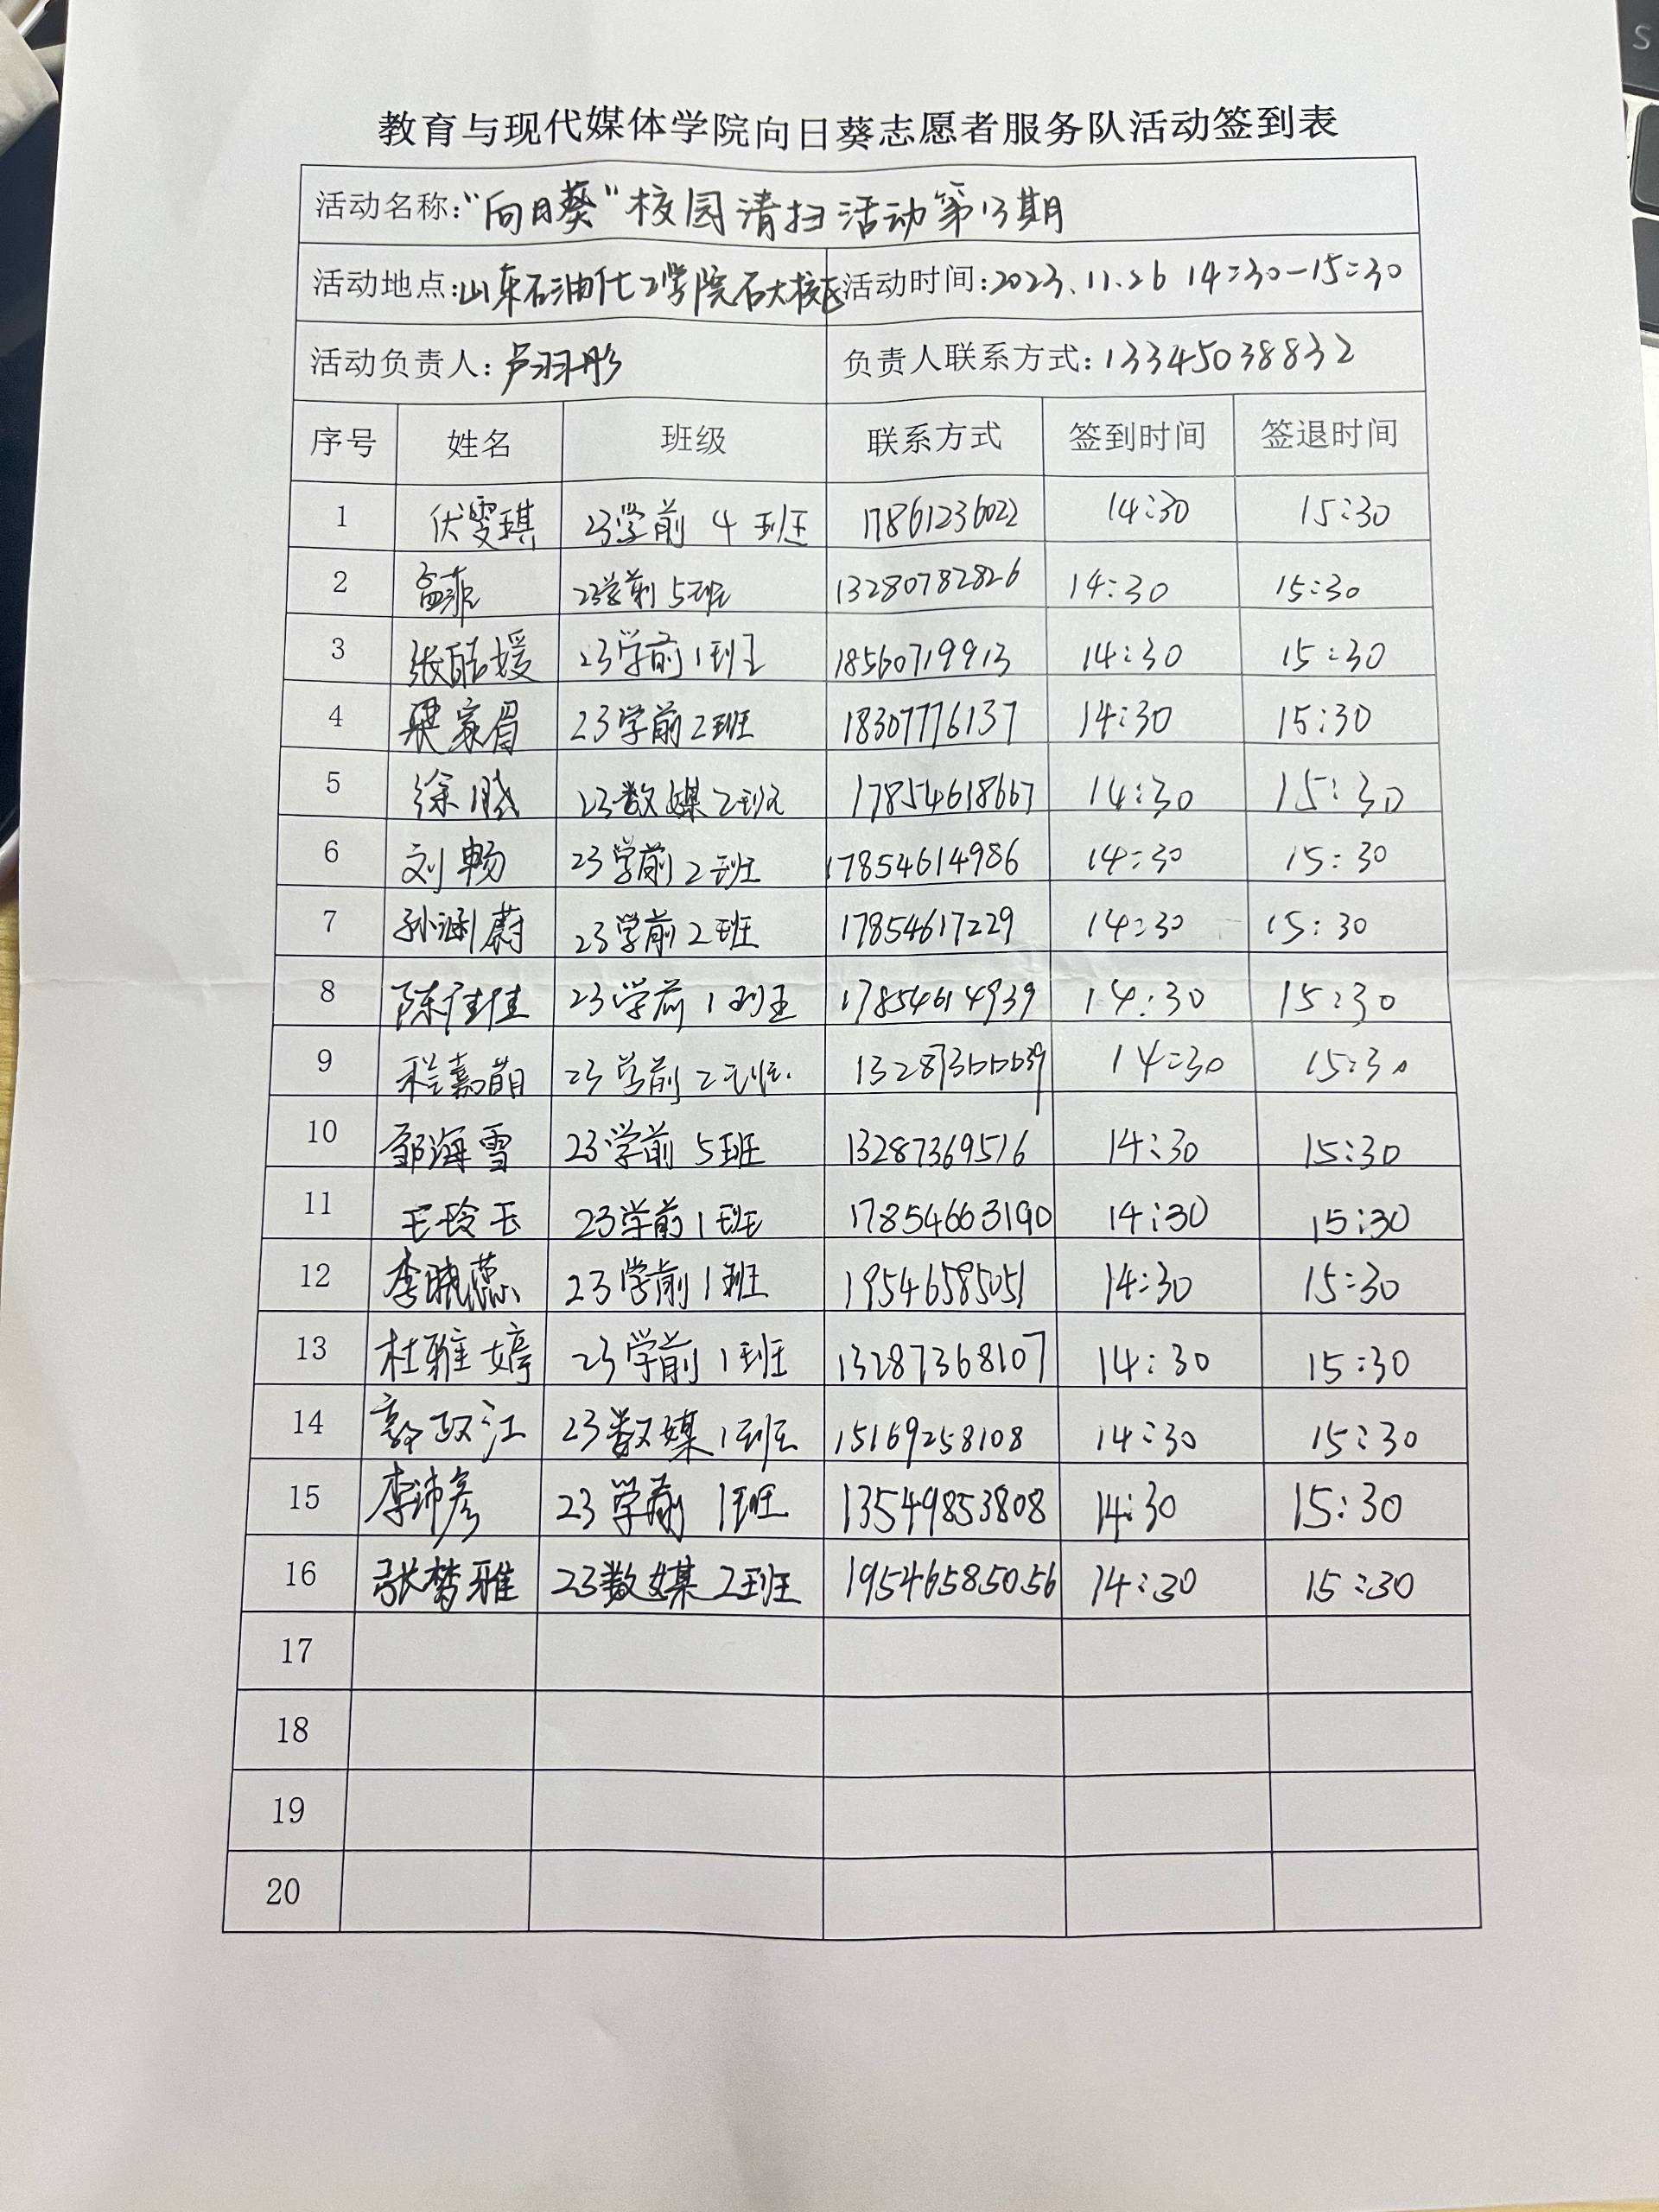 教育与现代媒体学院向日葵志愿者服务队活动签到表
活动名称:“向日葵”校园清扫活动第13期
活动地点:山东石油化工学院石大校区 活动时间:2023.11.26 14:30-15:30
活动负责人:卢羽彤 负责人联系方式:13345038832
序号 姓名 班级 联系方式 签到时间 签退时间
1 伏雯琪 23学前4班 17861236022 14:30 15:30
2 孟菲 23学前5班 13280782826 14:30 15:30
3 张皓媛 23学前1班 18560719913 14:30 15:30
4 梁家眉 23学前2班 18307776137 14:30 15:30
5 徐晓 23数媒2班 17854618667 14:30 15:30
6 刘畅 23学前2班 17854614986 14:30 15:30
7 孙涵蔚 23学前2班 17854617229 14:30 15:30
8 陈佳佳 23学前1班 17854614939 14:30 15:30
9 程嘉萌 23学前2班 14:30 15:30
10 邹海雪 23学前5班 13287369516 14:30 15:30
11 王玲玉 23学前1班 17854663190 14:30 15:30
12 李晓蕊 23学前1班 19546585051 14:30 15:30
13 杜雅婷 23学前1班 13287368107 14:30 15:30
14 郭政江 23数媒1班 15169258108 14:30 15:30
15 李沛彦 23学前1班 13549853808 14:30 15:30
16 张梦雅 23数媒2班 19546585056 14:30 15:30
17
18
19
20
S